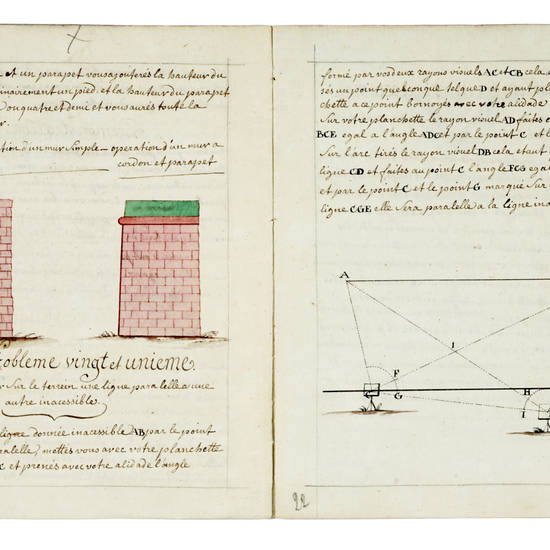 et un parapet vous ajouterés la hauteur du
un pied. et la hauteur du parapet
ou quatre et demi et vous aurés toute la
d'un mur simple _ operation d'un mur a
cordon et parapet
obleme vingt et unieme.
Sur le terrein une ligne paralelle a une
autre inacessible.
ligne donnée inacessible AB par le point
ralelle, mettés vous avec votre planchette
C et prenés avec votre alidade l'angle
formé par vos deux rayons visuels AC et CB cela
sés un point quelconque tel que D et ayant
chette a ce point bornoyés avec votre alidade
Sur votre planchette le rayon visuel AD faites
BCE egal a l'angle ADC et par le point C et
Sur l'arc tirés le rayon visuel DB cela etant
ligne CD et faites au point C l'angle FCG
et par le point C et le point G marqué Sur
ligne CGE elle Sera paralelle a la ligne
A
I
F
G
H
I
22